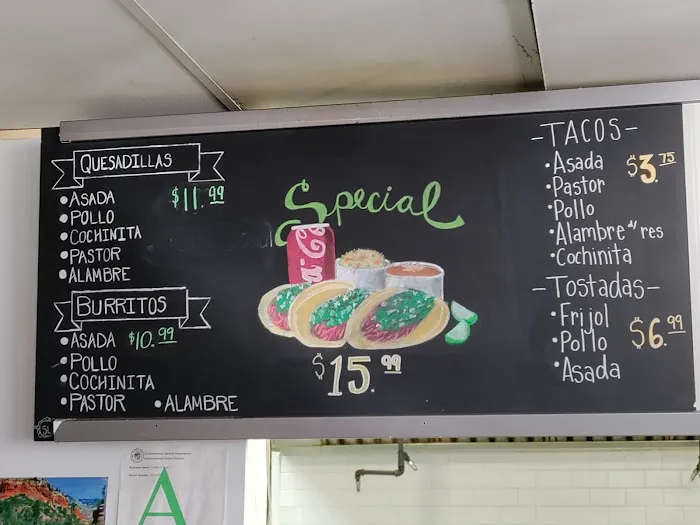 QUESADILLAS
• ASADA $11.99
• POLLO
• COCHINITA
• PASTOR
• ALAMBRE
BURRITOS
• ASADA $10.99
• POLLO
• COCHINITA
• PASTOR • ALAMBRE
Special
$15.99
-TACOS-
• Asada $3.75
• Pastor
• Pollo
• Alambre d/ res
• Cochinita
-Tostadas-
• Frijol
• Pollo $6.99
• Asada
SL
A